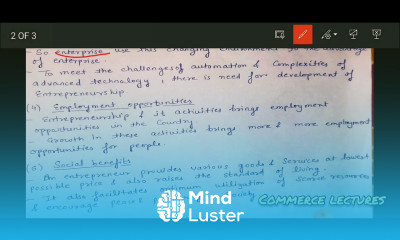 2 OF 3
- So enterprise use this changing environment to the advantage
of enterprise.
- To meet the challenges of automation & Complexities of
advanced technology, there is need for development of
Entrepreneurship
(4) Employment opportunities
- Entrepreneurship & it activities brings employment
opportunities in the Country
- Growth in these activities brings more & more employment
opportunities for people.
(5) Social benefits
- An entrepreneur provides various goods & services at lowest
possible price & also raises the standard of living
- It also facilitates optimum utilization of scarce resources
& encourage peace
Mind
Luster
COMMERCE LECTURES